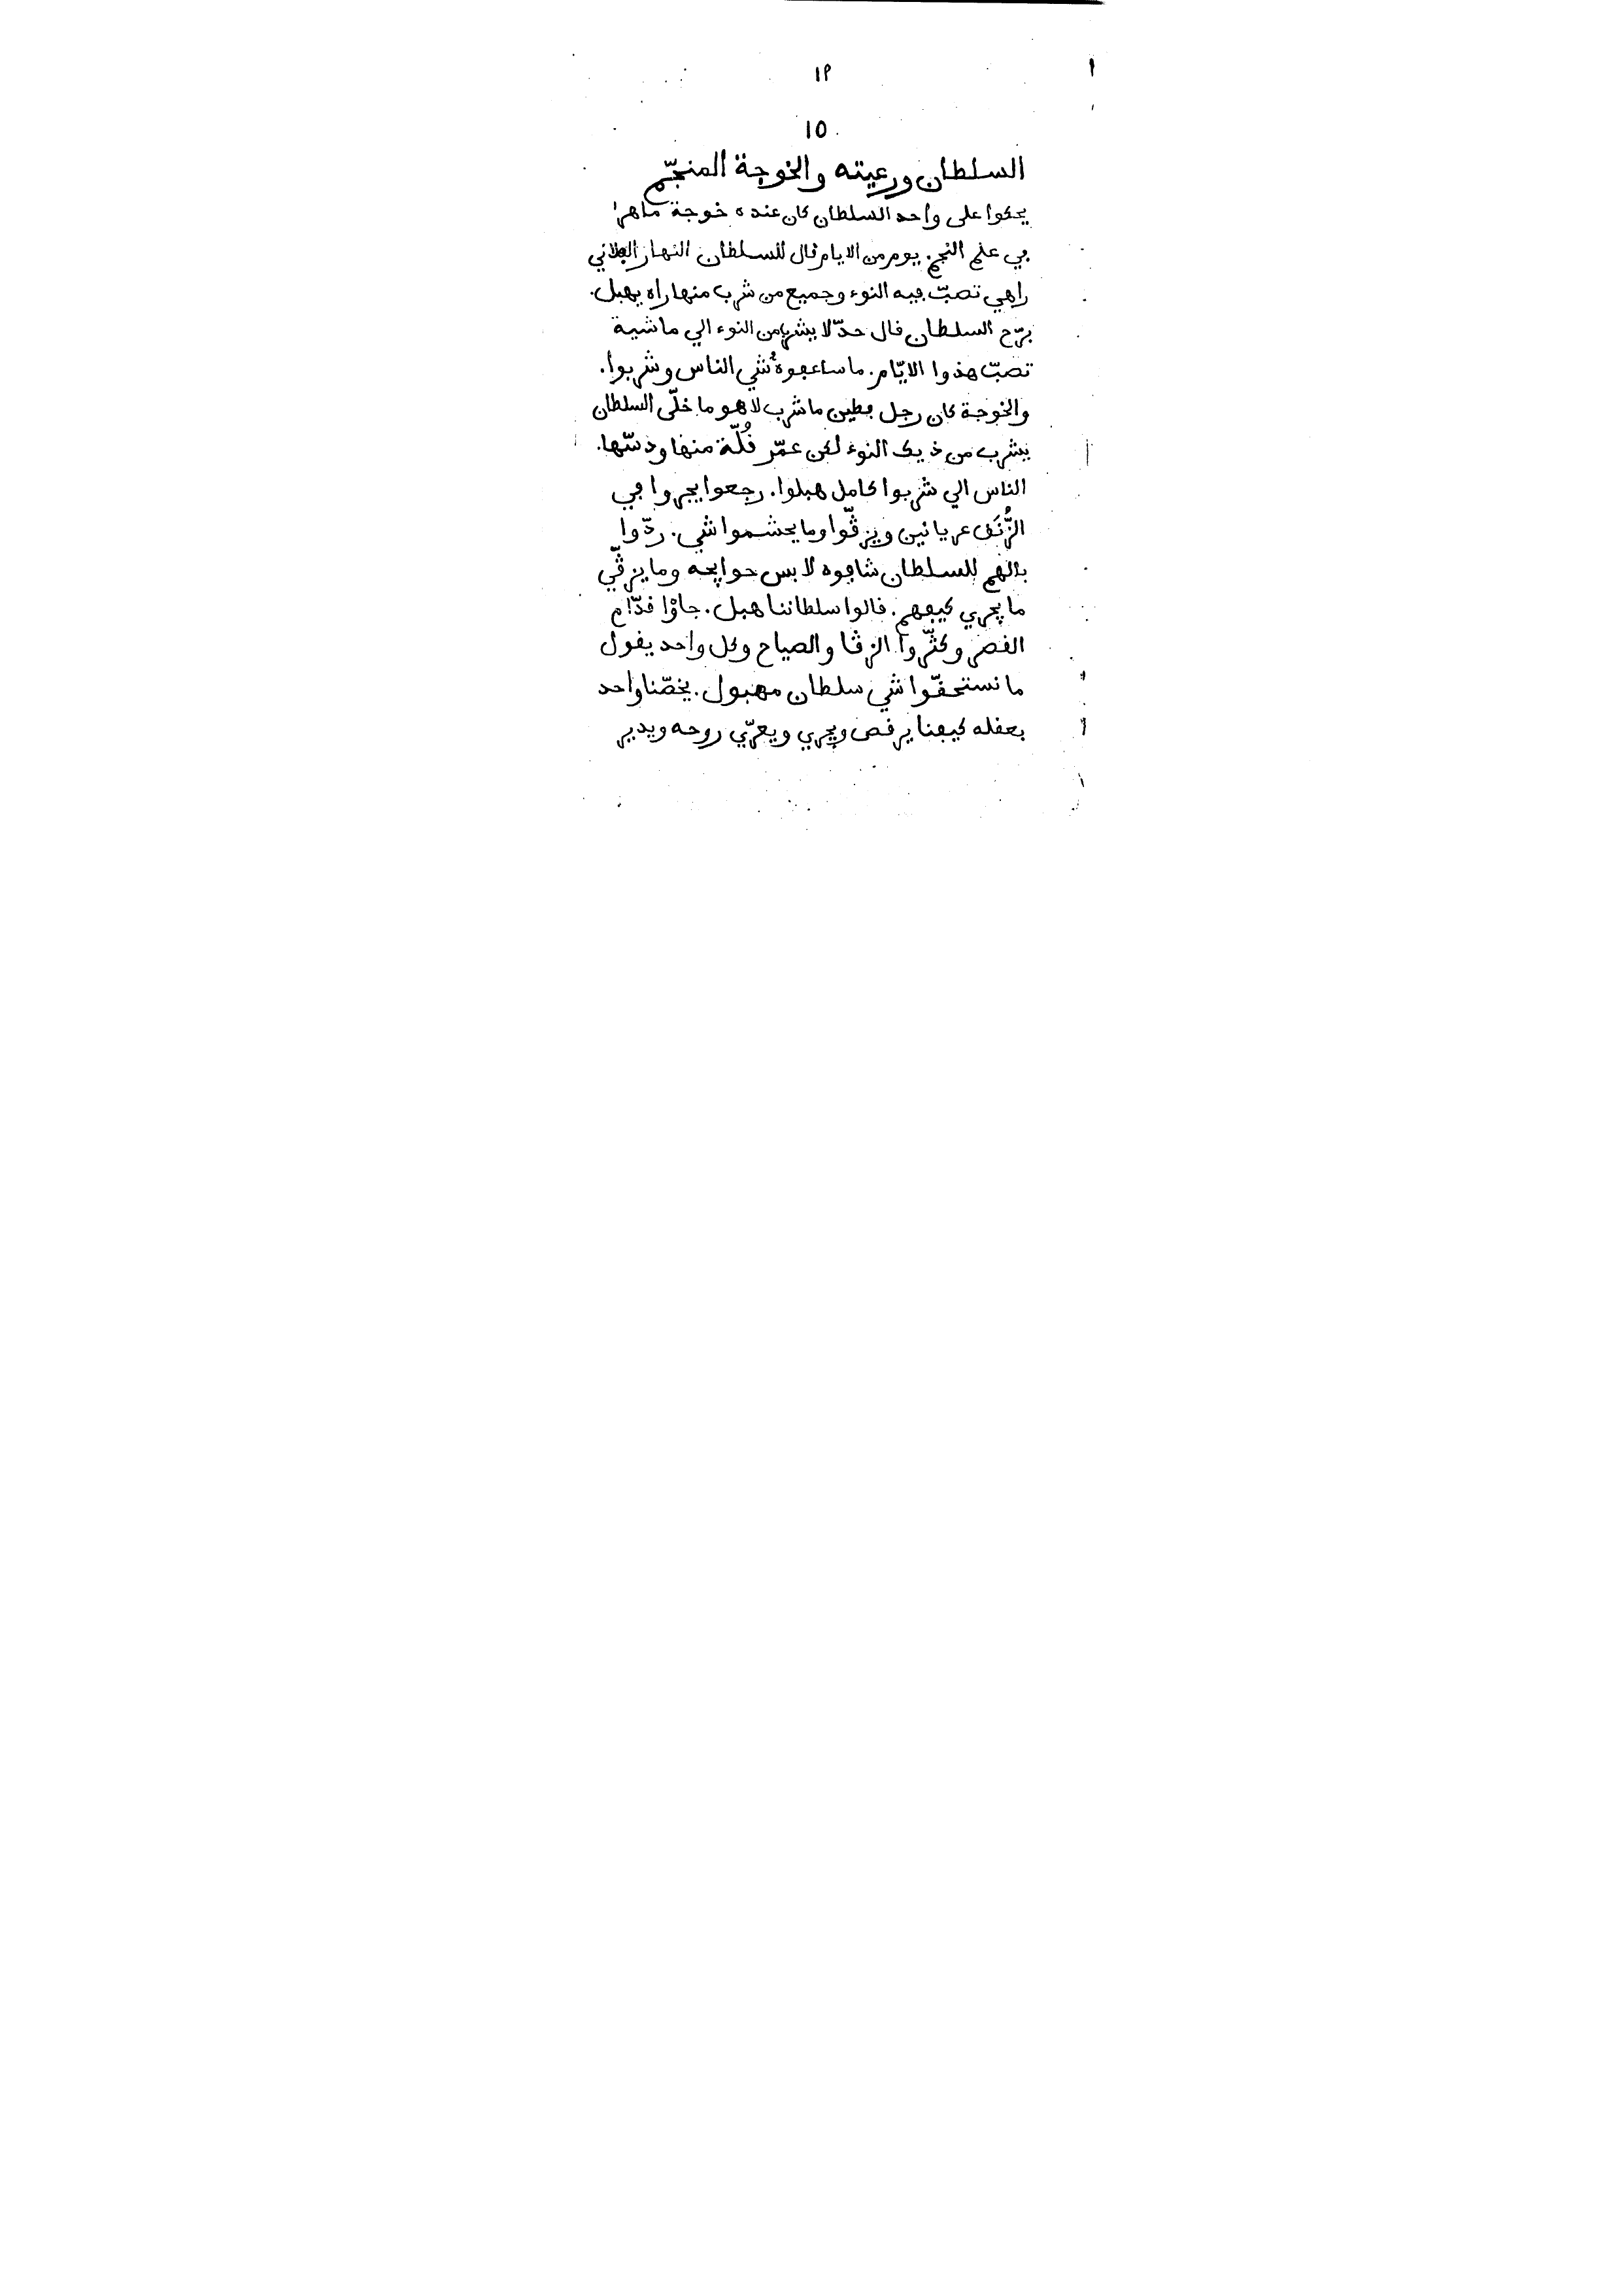 ١٩
١٥
السلطان ورعيته والخوجة المنجّم
يحكوا على واحد السلطان كان عنده خوجة ماهرا
في علم النجم. يوم من الايام قال للسلطان النهار الفلاني
راهي تصبّ فيه النوء وجميع من شرب منها راه يهبل.
برّح السلطان قال حدّ لا يشرب من النوء الي ماشية
تصبّ هذوا الايّام. ما ساعفوهُ شي الناس وشربوا.
والخوجة كان رجل فطين ما شرب لا هو ما خلّى السلطان
يشرب من ذيك النوء لكن عمّر قُلّة منها ودسّها.
الناس الي شربوا كامل هبلوا. رجعوا يجروا في
الزُّنَق عريانين ويزڨّوا وما يحشموا شي. ردّوا
بالهم للسلطان شافوه لابس حوايجه وما يزڨّي
ما يجري كيفهم. قالوا سلطاننا هبل. جاوْا قدّام
القصر وكثّروا الزڨا والصياح وكل واحد يقول
ما نستحقّوا شي سلطان مهبول. يخصّنا واحد
بعقله كيفنا يرقص ويجري ويعرّي روحه ويدير